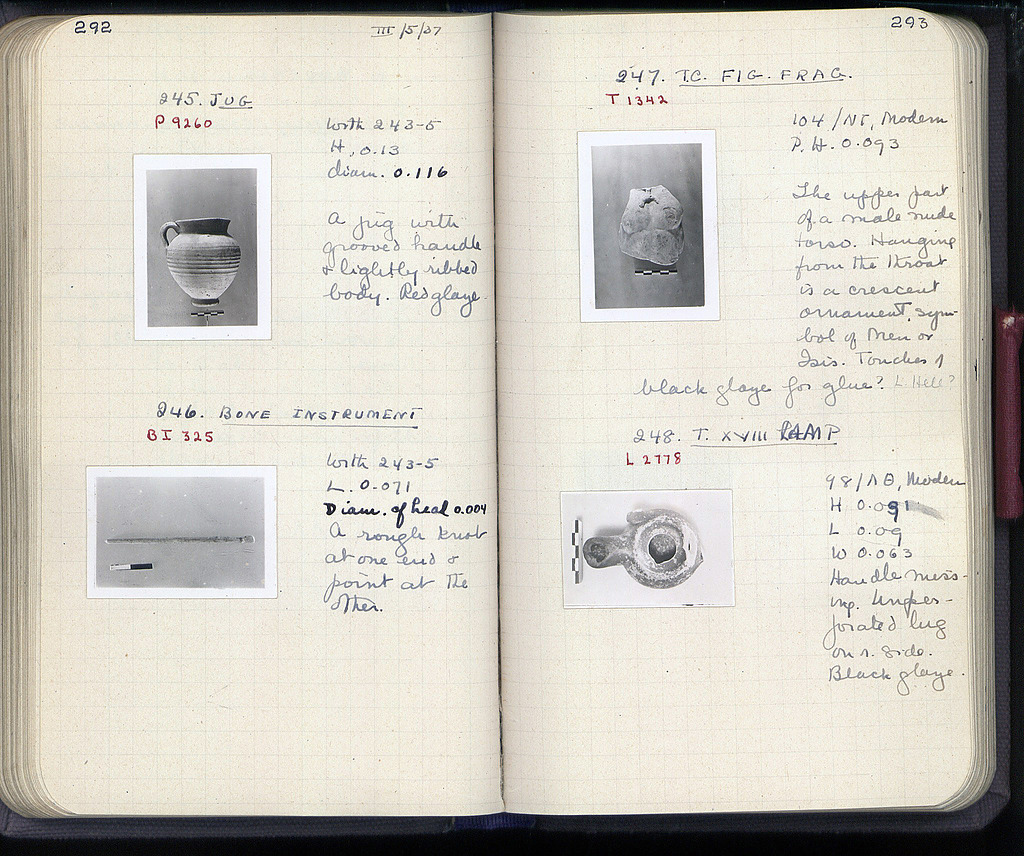 292
III/5/37
245. JUG
P 9260
With 243-5
H. 0.13
diam. 0.116
A jug with
grooved handle
& lightly ribbed
body. Red glaze.
246. BONE INSTRUMENT
BI 325
With 243-5
L. 0.071
Diam. of head 0.004
A rough knob
at one end &
point at the
other.
293
247. T.C. FIG. FRAG.
T 1342
104/NT, Modern
P.H. 0.093
The upper part
of a male nude
torso. Hanging
from the throat
is a crescent
ornament, sym-
bol of Men or
Isis. Touches of
black glaze for glue?
248. T. XVIII LAMP
L 2778
98/ΛΘ, Modern
H 0.091
L 0.09
W 0.063
Handle miss-
ing. Unper-
forated lug
on r. side.
Black glaze.